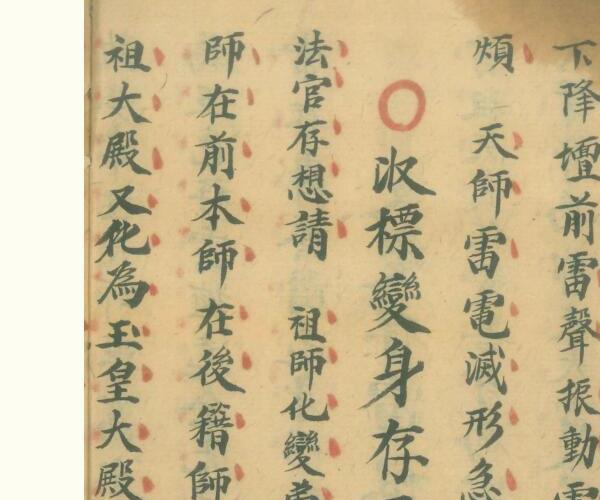 下降壇前雷聲振動
煩 天師雷電滅形急
○収標變身存
法官存想請 祖師化變
師在前本師在後籍師
祖大殿又化為玉皇大殿